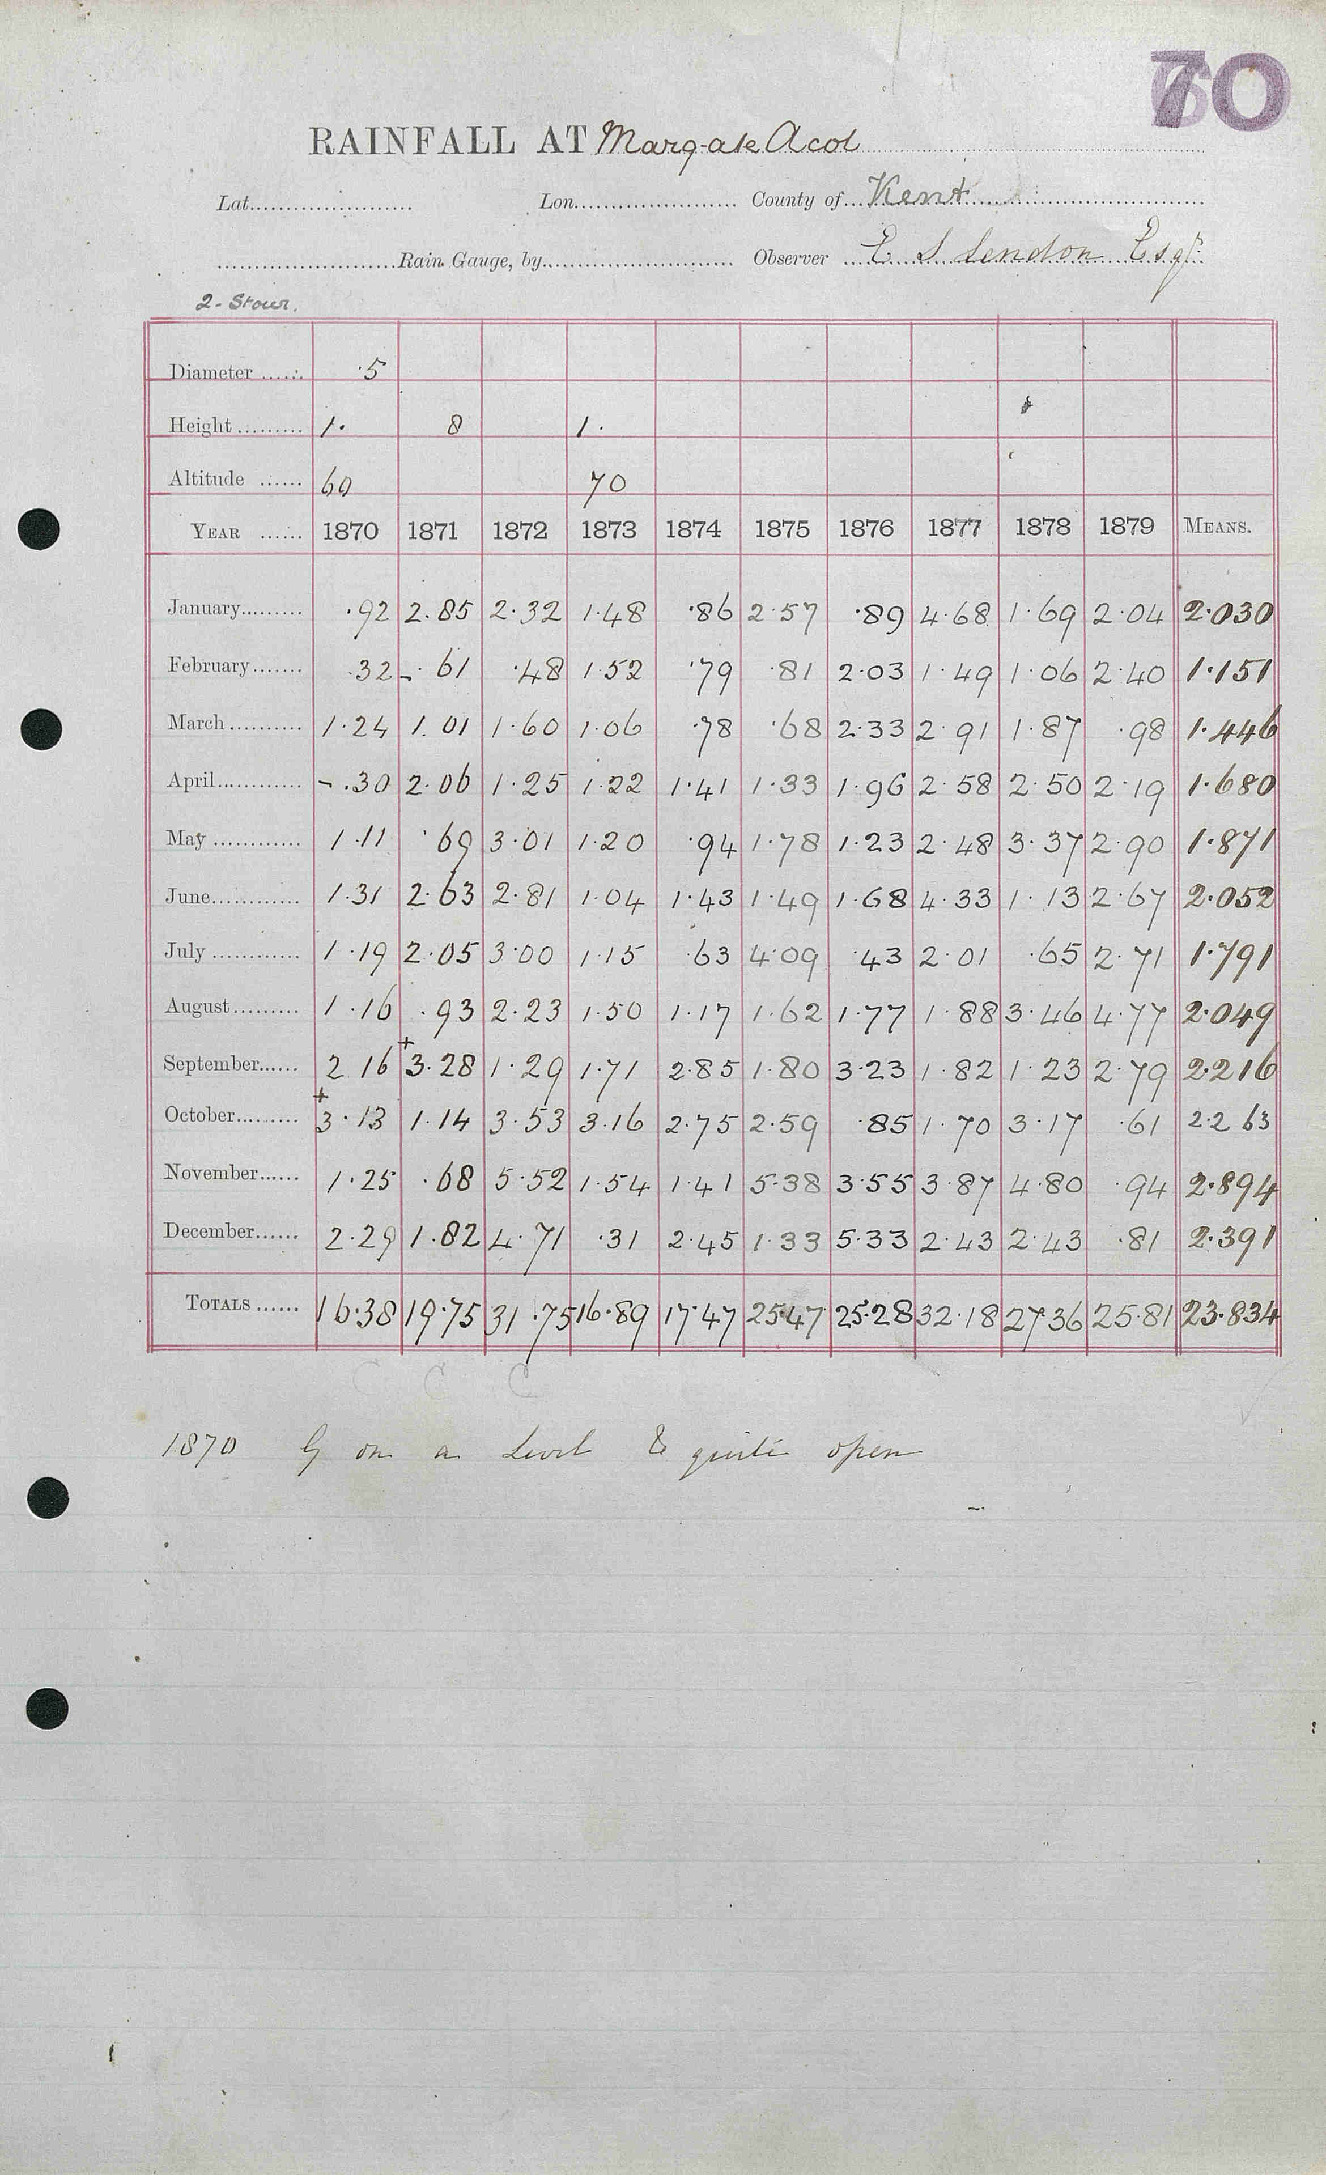 70
RAINFALL AT Margate Acol
Lat. Lon. County of Kent
Rain Gauge, by Observer E S Lendon Esqr
2 - Stour.
Diameter 5
Height 1. 8 1.
Altitude 60 70
YEAR 1870 1871 1872 1873 1874 1875 1876 1877 1878 1879 MEANS.
January .92 2.85 2.32 1.48 .86 2.57 .89 4.68 1.69 2.04 2.030
February .32 .61 .48 1.52 .79 .81 2.03 1.49 1.06 2.40 1.151
March 1.24 1.01 1.60 1.06 .78 .68 2.33 2.91 1.87 .98 1.446
April - .30 2.06 1.25 1.22 1.41 1.33 1.96 2.58 2.50 2.19 1.680
May 1.11 .69 3.01 1.20 .94 1.78 1.23 2.48 3.37 2.90 1.871
June 1.31 2.63 2.81 1.04 1.43 1.49 1.68 4.33 1.13 2.67 2.052
July 1.19 2.05 3.00 1.15 .63 4.09 .43 2.01 .65 2.71 1.791
August 1.16 .93 2.23 1.50 1.17 1.62 1.77 1.88 3.46 4.77 2.049
September 2.16 +3.28 1.29 1.71 2.85 1.80 3.23 1.82 1.23 2.79 2.216
October +3.13 1.14 3.53 3.16 2.75 2.59 .85 1.70 3.17 .61 2.263
November 1.25 .68 5.52 1.54 1.41 5.38 3.55 3.87 4.80 .94 2.894
December 2.29 1.82 4.71 .31 2.45 1.33 5.33 2.43 2.43 .81 2.391
TOTALS 16.38 19.75 31.75 16.89 17.47 25.47 25.28 32.18 27.36 25.81 23.834
C C C
1870 G on a level & quite open